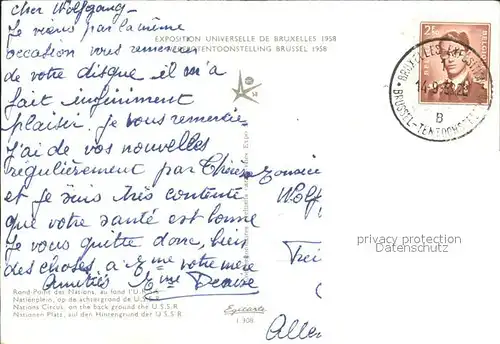 Cher Wolfgang-
Je viens par la même
occasion vous remercier
de votre disque il m'a
fait infiniment
plaisir. Je vous remercie-
J'ai de vos nouvelles
regulièrement par Thérèse
et je suis très contente
que votre santé est bonne
Je vous quitte donc, bien
des choses à votre mère
Amitiés Denise
EXPOSITION UNIVERSELLE DE BRUXELLES 1958
WERELDTENTOONSTELLING BRUSSEL 1958
BRUXELLES
14-9
B
BRUSSEL-TENTOONST
Wolf
privacy protection
Datenschutz
Allem
Rond-Point des Nations, au fond l'U.R.S.S.
Natiënplein, op de achtergrond de U.S.S.R.
Nations Circus, on the back ground the U.S.S.R.
Nationen Platz, auf den Hintergrund der U.S.S.R.
Egicarte
1 308